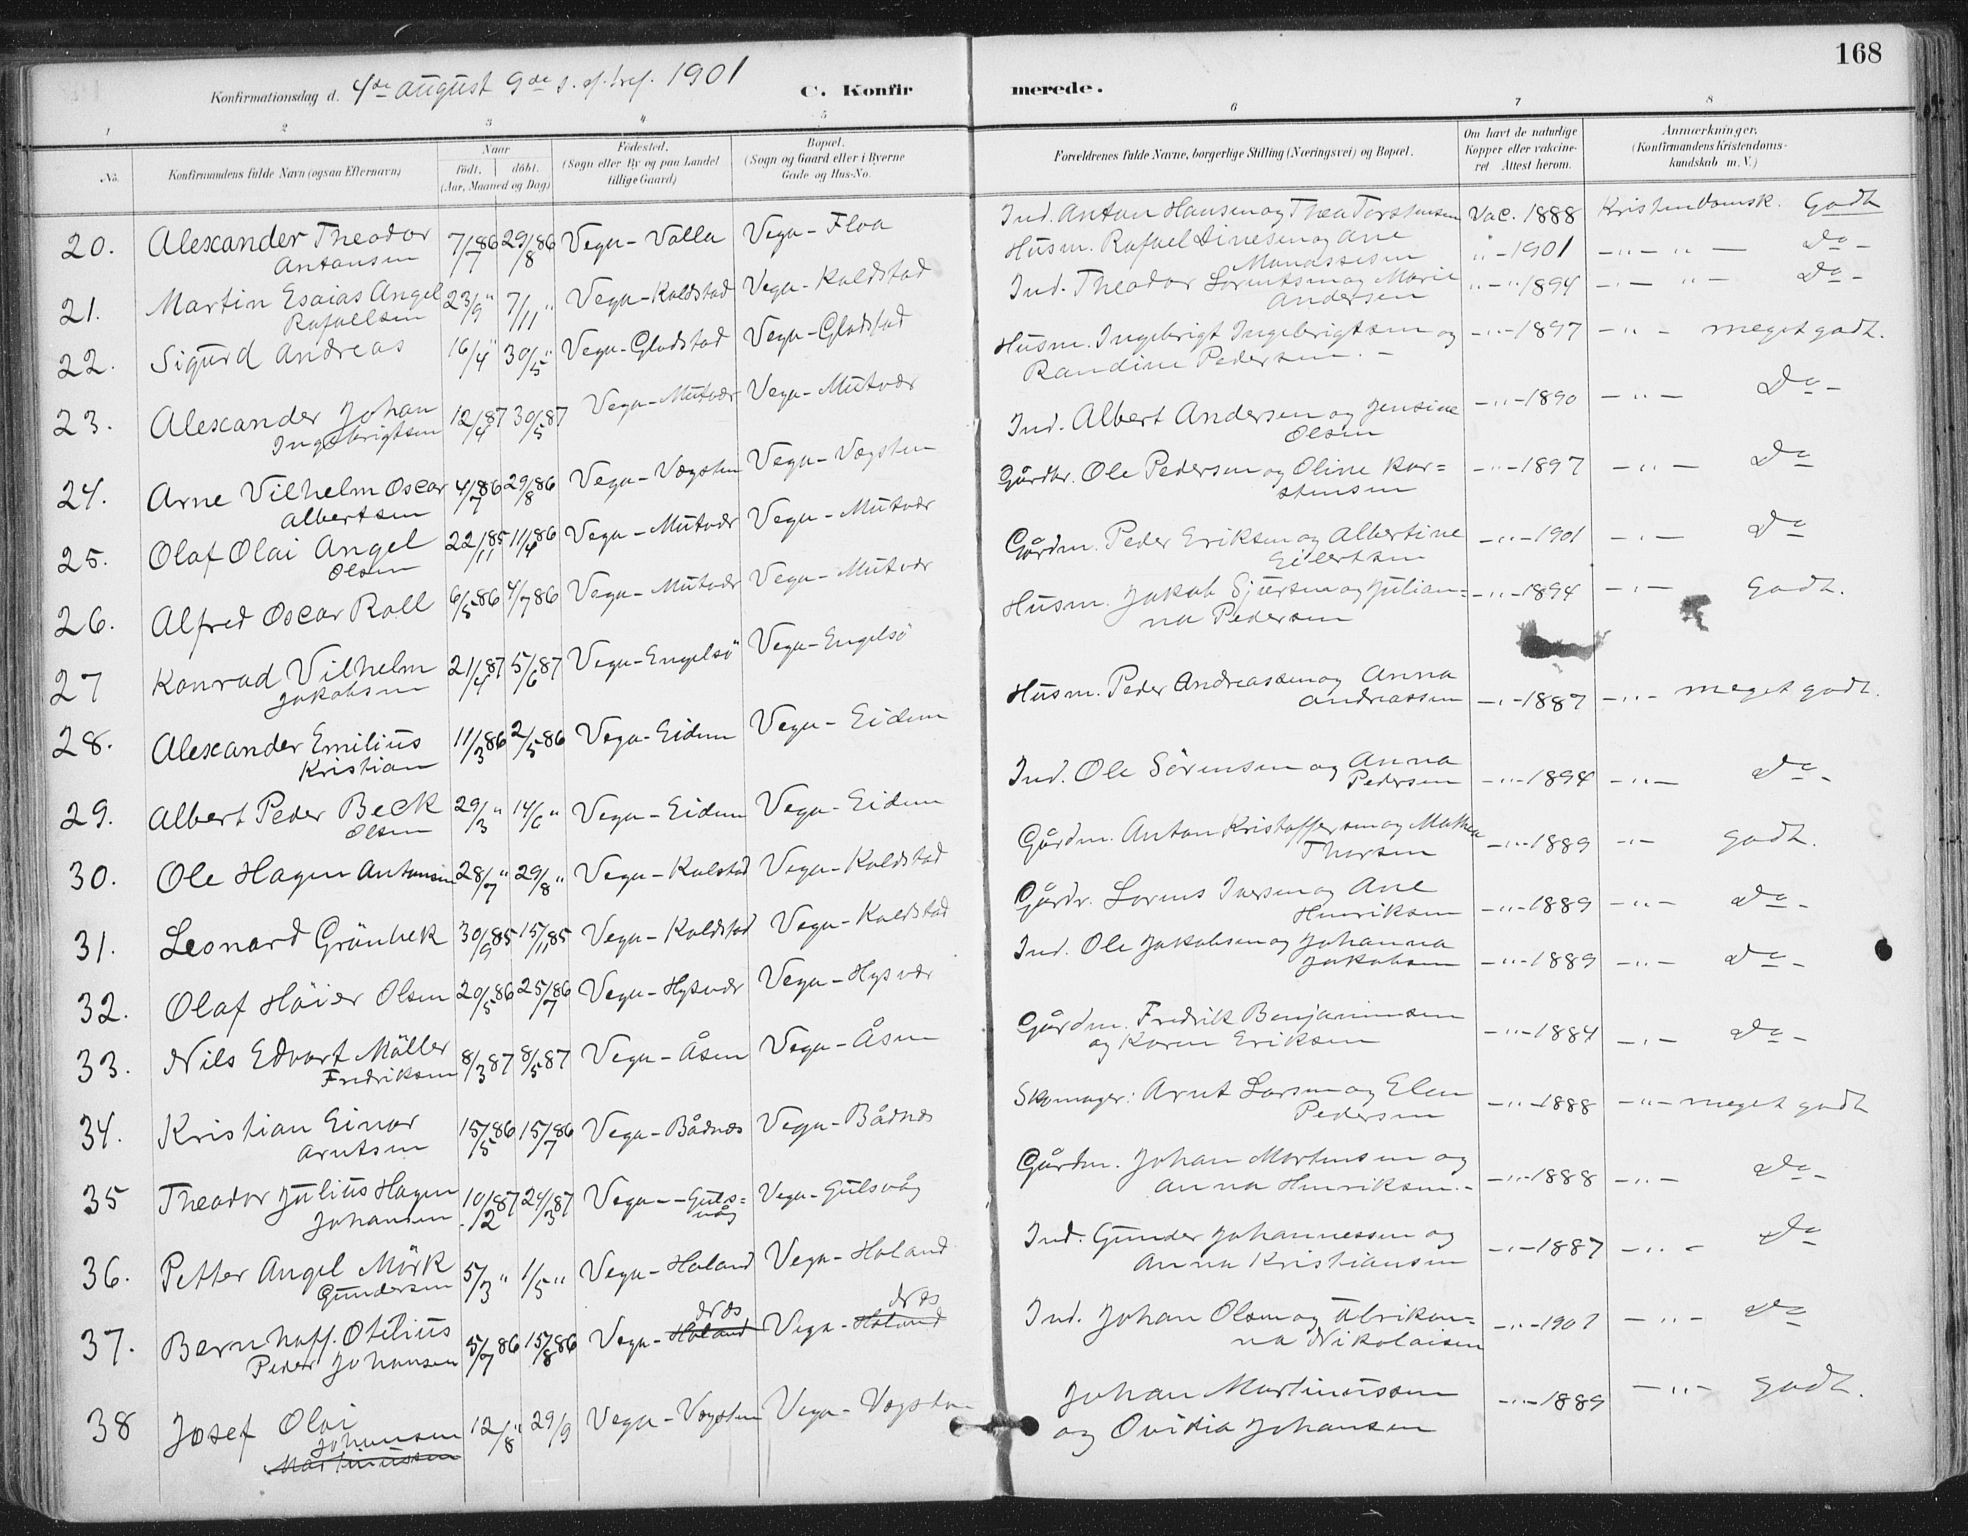 168
Konfirmationsdag d. 4de august 9de s. ef. tref. 1901
C. Konfirmerede.
1 2 3 4 5 6 7 8
No. Konfirmandens fulde Navn (ogsaa Efternavn) Naar født. døbt. (Aar, Maaned og Dag) Fødested. (Sogn eller By og paa Landet tillige Gaard) Bopæl. (Sogn og Gaard eller i Byerne Gade og Hus-No. Forældrenes fulde Navne, borgerlige Stilling (Næringsvei) og Bopæl. Om havt de naturlige Kopper eller vaccineret Attest herom. Anmærkninger, (Konfirmandens Kristendomskundskab m. V.)
20. Alexander Theodor Antonsen 7/7 86 29/8 86 Vega - Valla Vega - Floa Ind. Anton Hansen og Thea Torstensen Vac. 1888 Kristendomsk. Godt
21. Martin Esaias Angel Rafaelsen 23/9 " 7/11 " Vega - Koldstad Vega - Koldstad Husm. Rafael Dinesen og Ane Manassesen " - 1901 - " - " - Do -
22. Sigurd Andreas 16/4 " 30/5 " Vega - Gladstad Vega - Gladstad Ind. Theodor Lorentsen og Marie Andersen " - " 1894 - " - " - Do -
23. Alexander Johan Ingebrigtsen 12/4 87 30/5 87 Vega - Mutvær Vega - Mutvær Husm. Ingebrigt Ingebrigtsen og Randine Pedersen. - - " - 1897 - " - meget godt.
24. Arne Vilhelm Oscar Albertsen 4/7 86 29/8 86 Vega - Vægsten Vega - Vægsten Ind. Albert Andersen og Jensine Olsen - " - 1890 - " - Do -
25. Olaf Olai Angel Olsen 22/11 85 11/4 86 Vega - Mutvær Vega - Mutvær Gårdbr. Ole Pedersen og Oline Karstensen - " - 1897 - " - Do
26. Alfred Oscar Roll 6/5 86 4/7 86 Vega - Mutvær Vega - Mutvær Gårdm. Peder Eriksen og Albertine Eilertsen - " - 1901 - " - Do
27 Konrad Vilhelm Jakobsen 21/4 87 5/6 87 Vega - Engelsö Vega - Engelsö Husm. Jakob Sjursen og Julianna Pedersen - " - 1894 - " - godt.
28. Alexander Emilius Kristian 11/3 86 2/5 86 Vega - Eidem Vega - Eidem Husm. Peder Andreassen og Anna Andreassen - " - 1887 - " - meget godt.
29. Albert Peder Beck Olsen 29/3 " 14/6 " Vega - Eidem Vega - Eidem Ind. Ole Sörensen og Anna Pedersen - " - 1894 - " - Do -
30. Ole Hagen Antonsen 28/7 " 29/8 " Vega - Kolstad Vega - Koldstad Gårdm. Anton Kristoffersen og Mathea Thorsen - " - 1889 - " - godt.
31. Leonard Grönbek 30/9 85 15/11 85 Vega - Koldstad Vega - Koldstad Gårdr. Lorens Iversen og Ane Henriksen - " - 1889 - " - Do -
32. Olaf Höier Olsen 20/5 86 25/7 86 Vega - Hysvær Vega - Hysvær Ind. Ole Jakobsen og Johanna Jakobsen - " - 1889 - " - Do -
33. Nils Edvart Möller Fredriksen 8/3 87 8/5 87 Vega - Åsen Vega - Åsen Gårdm. Fredrik Benjaminsen og Karen Eriksen - " - 1884 - " - Do -
34. Kristian Einar Arntsen 15/5 86 15/7 86 Vega - Bådnæs Vega - Bådnæs Skomager: Arnt Larsen og Elen Pedersen - " - 1888 - " - meget godt
35 Theodor Julius Hagen Johansen 10/12 87 24/3 87 Vega - Gulsvåg Vega - Gulsvåg Gårdm. Johan Mortensen og Anna Henriksen. - - " - 1888 - " - Do -
36. Petter Angel Mörk Gundersen 5/3 " 1/5 " Vega - Holand Vega - Holand Ind. Gunder Johannessen og Anna Kristiansen - " - 1887 - " - Do
37. Bernhoff. Otilius Peder Johansen 5/7 86 15/8 86 Vega - Holand Næs Vega - Holand Næs Ind. Johan Olsen og Ulrikanna Nikolaisen - " - 1901 - " - Do
38 Josef Olai Johansen Martinussen 12/8 " 29/9 Vega - Vægsten Vega - Vægsten Johan Martinussen og Ovidia Johansen - " - 1889 - " - godt.